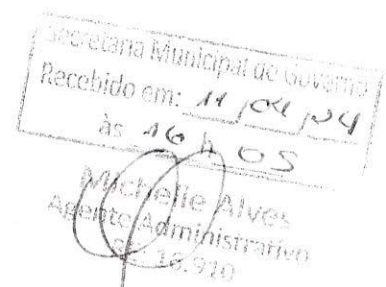 Secretaria Municipal de Governo
Recebido em: 11/04/24
às 16h05
Michelle Alves
Agente Administrativo
16.910